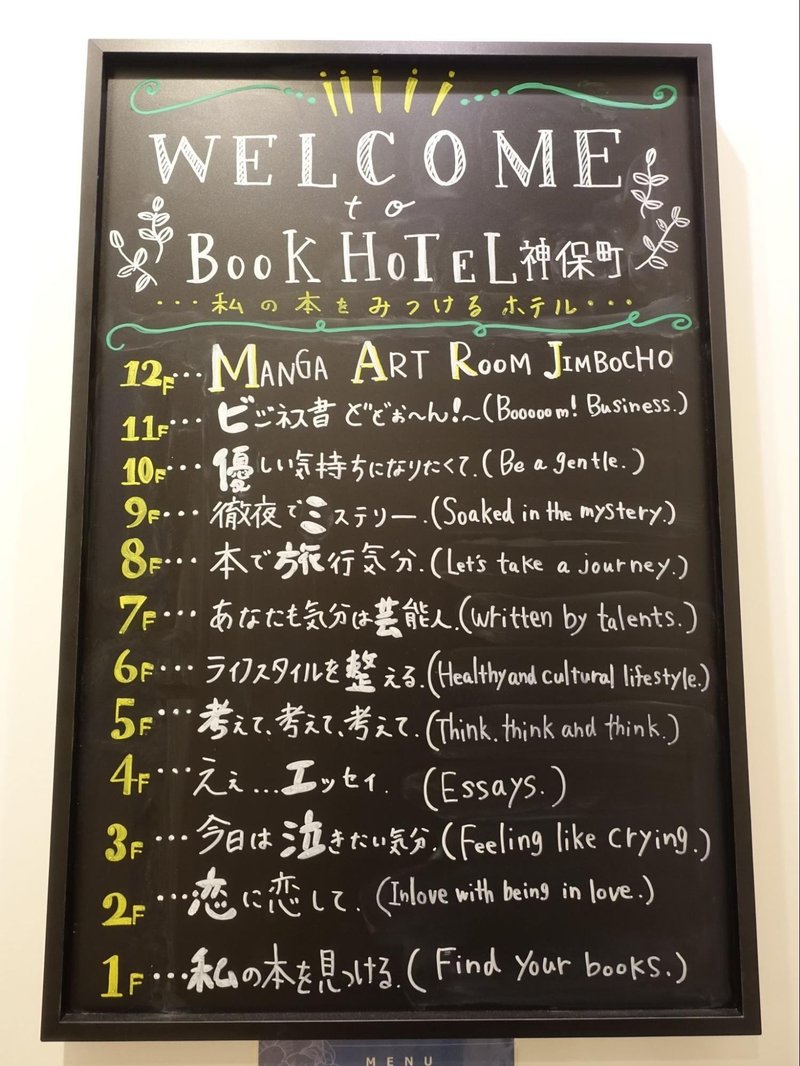 WELCOME
to
BOOK HOTEL 神保町
・・・私の本をみつけるホテル・・・
12F・・・MANGA ART ROOM JIMBOCHO
11F・・・ビジネス書 どどぉ〜ん!〜(Booooom! Business.)
10F・・・優しい気持ちになりたくて.(Be a gentle.)
9F・・・徹夜でミステリー.(Soaked in the mystery.)
8F・・・本で旅行気分.(Let's take a journey.)
7F・・・あなたも気分は芸能人.(Written by talents.)
6F・・・ライフスタイルを整える.(Healthy and cultural lifestyle.)
5F・・・考えて、考えて、考えて.(Think. think and think.)
4F・・・えぇ...エッセイ.(Essays.)
3F・・・今日は泣きたい気分.(Feeling like crying.)
2F・・・恋に恋して.(In love with being in love.)
1F・・・私の本を見つける.(Find your books.)
MENU